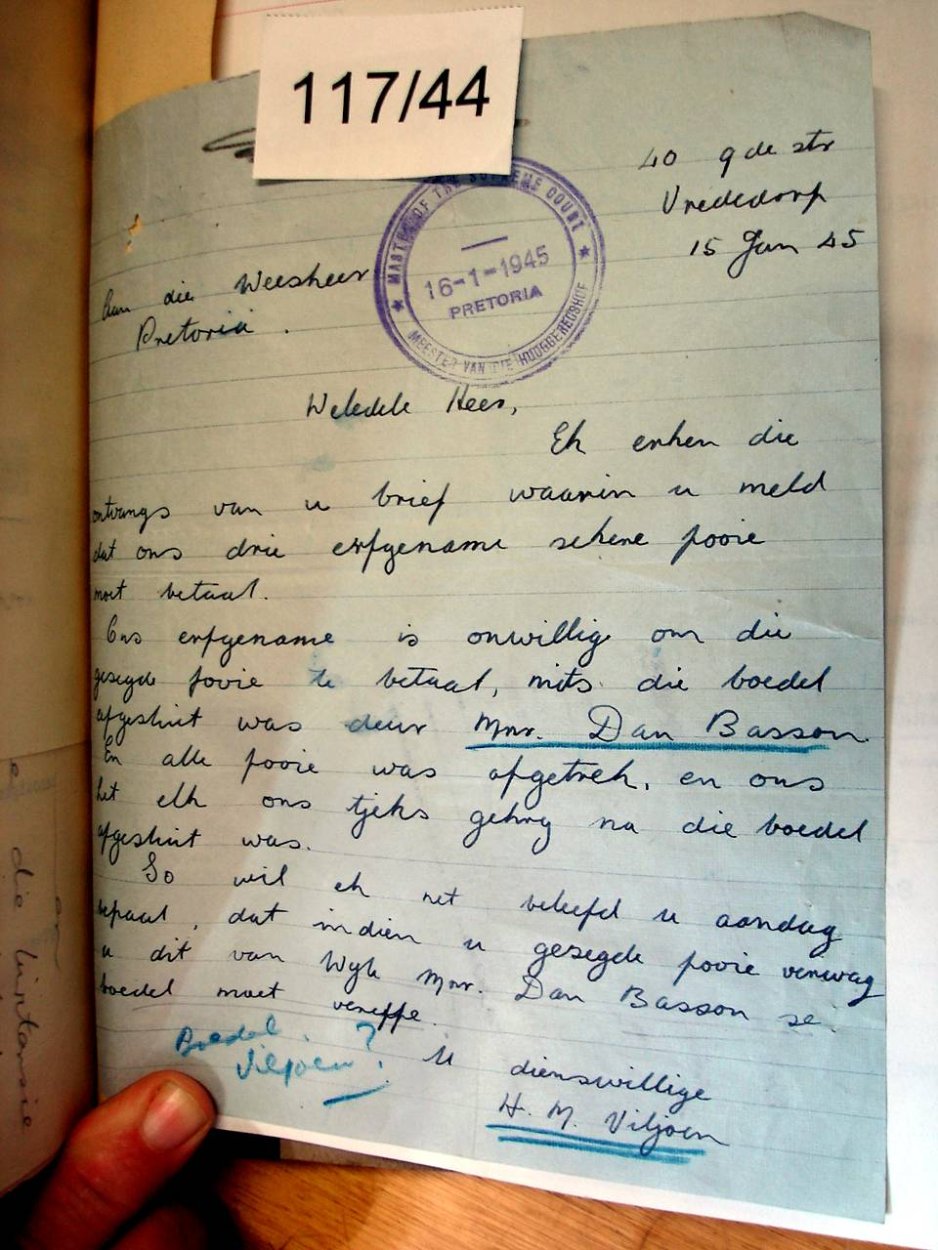 117/44
40 9de str
Vrededorp
15 Jan 45
MASTER OF THE SUPREME COURT
16-1-1945
PRETORIA
MEESTER VAN DIE HOOGGEREGSHOF
Aan die Weesheer
Pretoria.
Weledele Heer,
Ek erken die
ontvangs van u brief waarin u meld
dat ons drie erfgename sekere fooie
moet betaal.
Ons erfgename is onwillig om die
gesegde fooie te betaal, mits die boedel
afgesluit was deur Mnr. Dan Basson
En alle fooie was afgetrek, en ons
het elk ons tjeks gekry na die boedel
afgesluit was.
So wil ek net beleefd u aandag
bepaal, dat indien u gesegde fooie verwag
u dit van Wyle Mnr. Dan Basson se
boedel moet vereffe.
U dienswillige
H. M. Viljoen
Boedel
Viljoen?
die